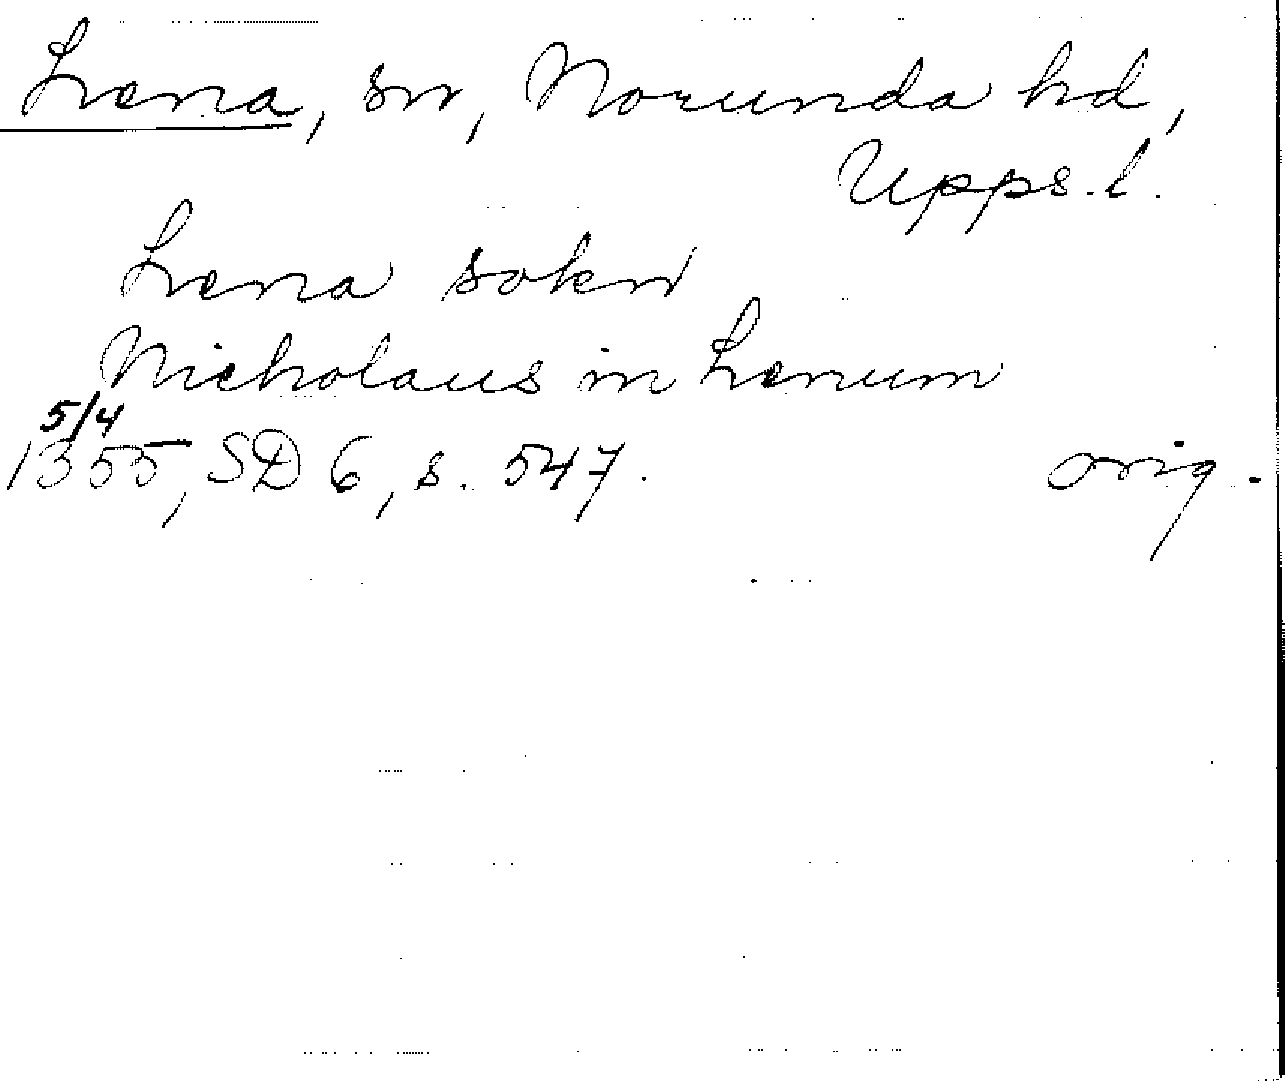 Lena, sn, Norunda hd,
Upps. l.
Lena sokn
Nicholaus in Lenum
5/4
1355, SD 6, s. 547. orig.